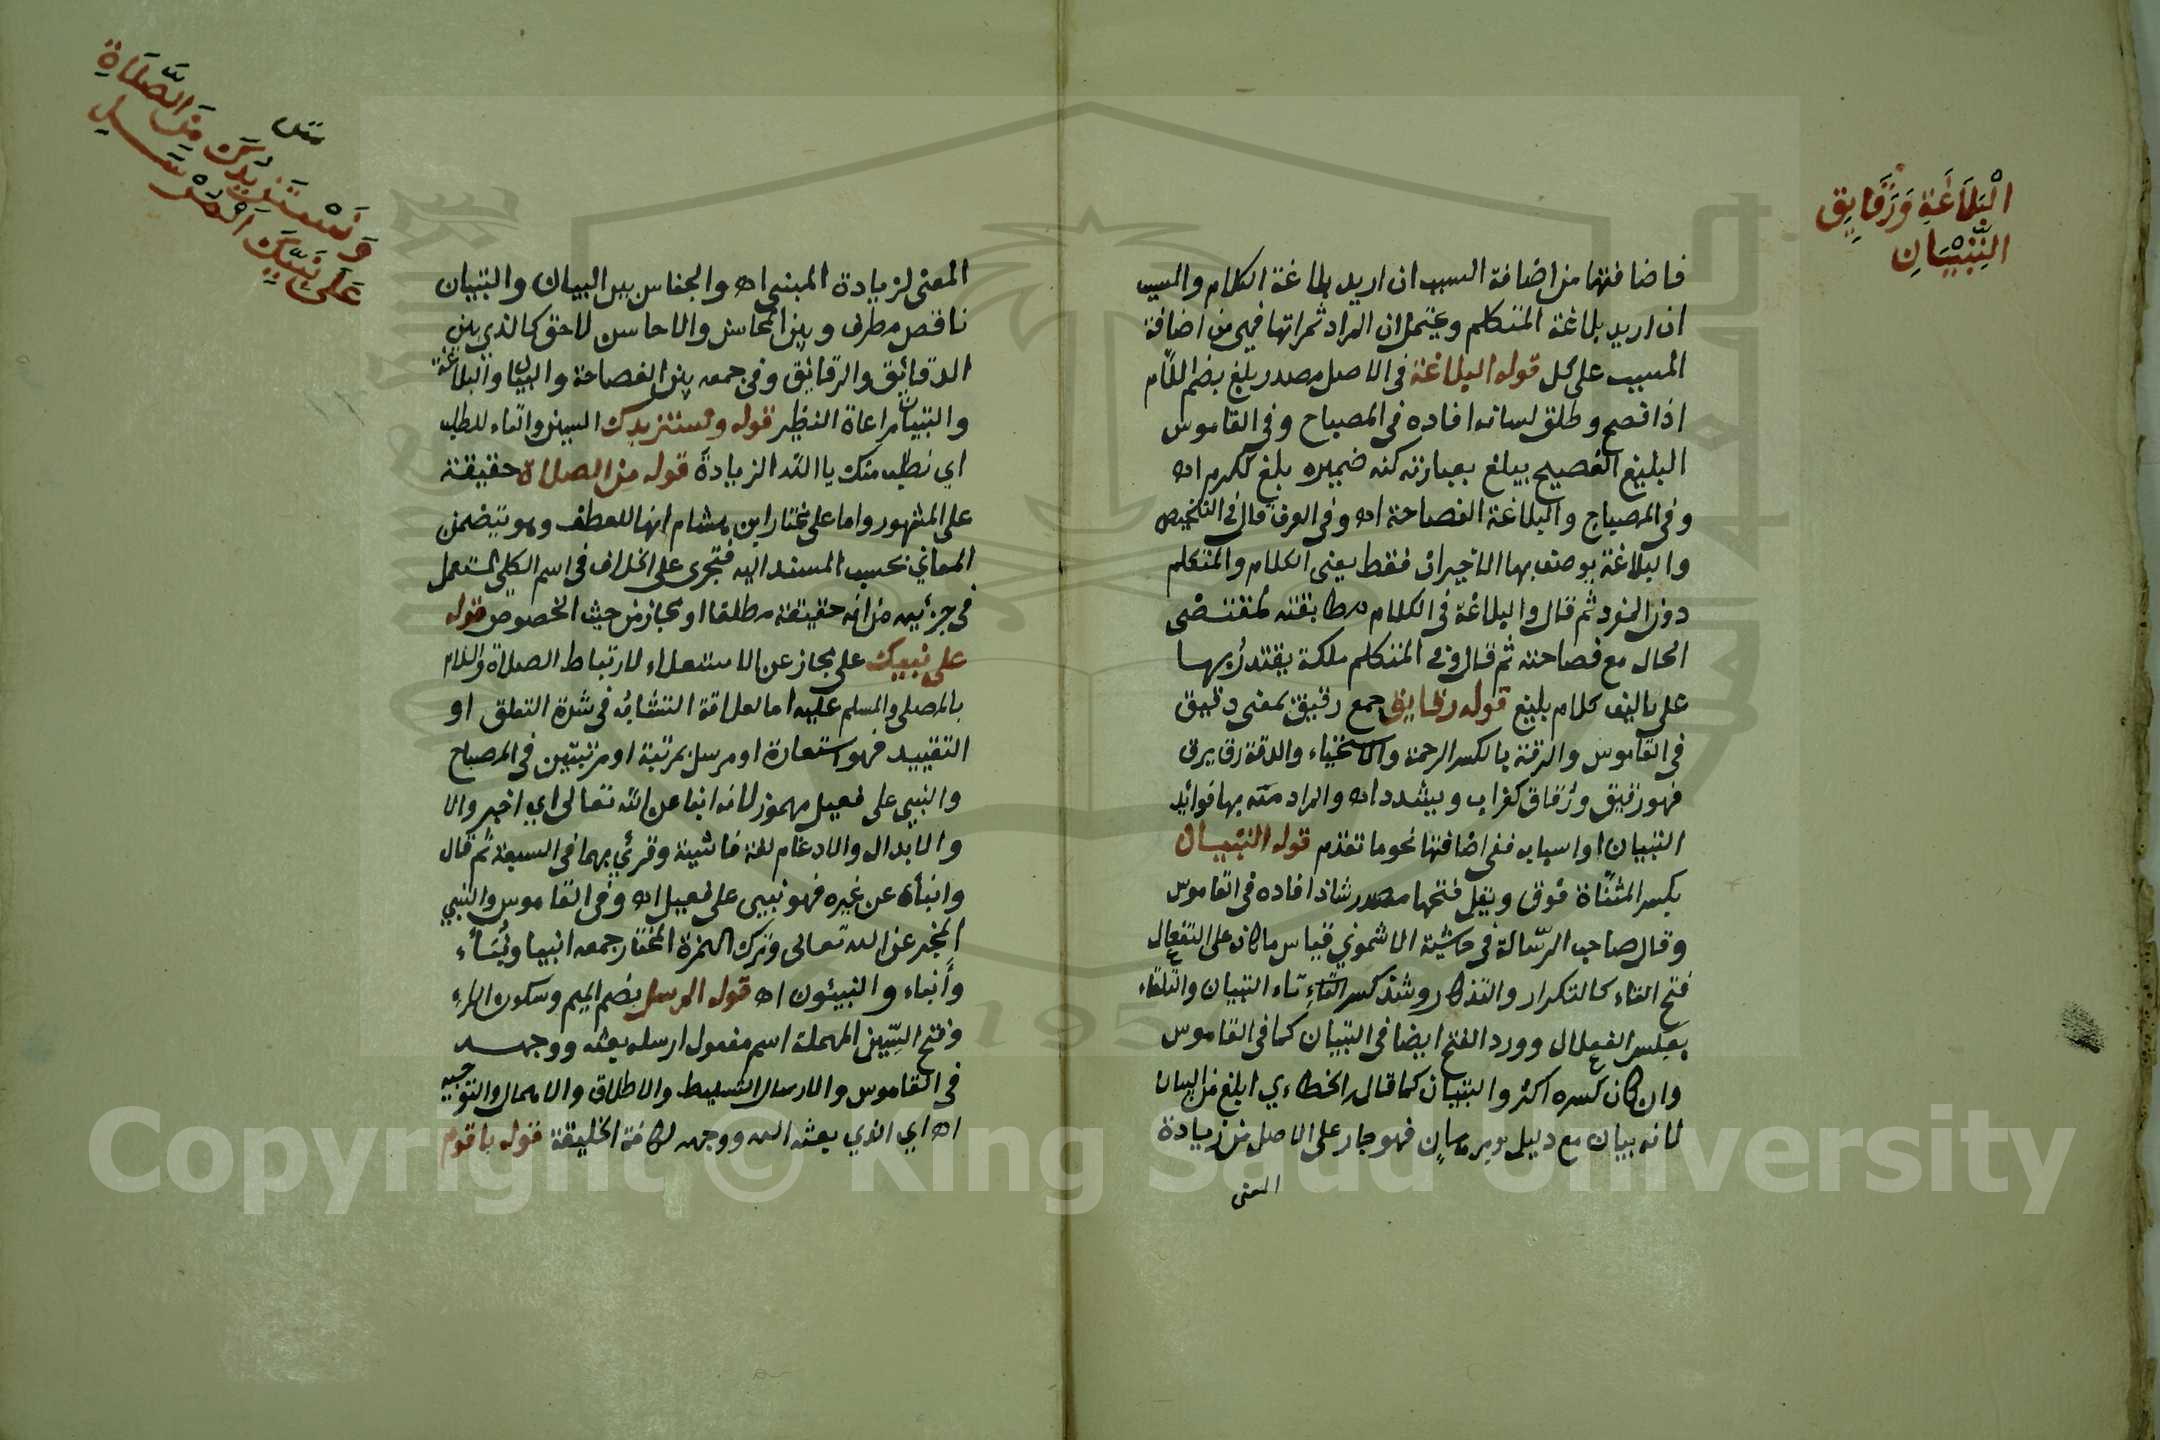 الْبَلَاغَةِ وَرَقَايِقِ
التِّبْيَانِ
فاضافتها من اضافة السبب ان اريد بلاغة الكلام والمسبب
ان اريد بلاغة المتكلم ويحتمل ان المراد ثمراتها فهي من اضافة
المسبب على كل قوله البلاغة في الاصل مصدر بلغ بضم اللام
اذا فصح وطلق لسانه افاده في المصباح وفي القاموس
البليغ الفصيح يبلغ بعبارته كنه ضميره بلغ ككرم اه
وفي المصباح والبلاغة الفصاحة اه وفي العرف قال في التلخيص
والبلاغة يوصف بها الاخيران فقط يعني الكلام والمتكلم
دون المفرد ثم قال والبلاغة في الكلام مطابقته لمقتضى
الحال مع فصاحته ثم قال وفي المتكلم ملكة يقتدر بها
على تاليف كلام بليغ قوله رقايق جمع رقيق بمعنى دقيق
في القاموس والرقة بالكسر الرحمة والاستحياء والدقة رق يرق
فهو رقيق ورقاق كغراب ويشدد اه والمراد منه بها فوائد
التبيان او اسبابه ففي اضافتها نحو ما تقدم قوله التبيان
بكسر المثناة فوق ويقل فتحها مصدر شاذ افاده في القاموس
وقال صاحب الرسالة في حاشية الاشموني قياس ما كان على التفعال
فتح التاء كالتكرار والتذكار وشذ كسر التاء تاء التبيان والتلقاء
بعكس الفعلال وورد الفتح ايضا في التبيان كما في القاموس
وان كان كسره اكثر والتبيان كما قال الخطاءي ابلغ من البيان
لانه بيان مع دليل وبرهان فهو جار على الاصل من زيادة
المعنى
متن
وَنَسْتَزِيدُكَ مِنَ الصَّلَاةِ
عَلَى نَبِيِّكَ الْمُرْسَلِ
المعنى لزيادة المبنى اه والجناس بين البيان والتبيان
ناقص مطرف وبين المحاسن والاحاسن لاحق كالذي بين
الدقائق والرقائق وفي جمعه بين الفصاحة والبيان والبلاغة
والتبيان مراعاة النظير قوله ونستزيدك السين والتاء للطلب
اي نطلب منك يا الله الزيادة قوله من الصلاة حقيقة
على المشهور واما على مختار ابن هشام انها للعطف وهو يتضمن
المعاني بحسب المسند اليه فتجرى على الخلاف في اسم الكلي المستعمل
في جزئيه من انه حقيقة مطلقا او مجاز من حيث الخصوص قوله
على نبيك على مجاز عن الاستعلاء لارتباط الصلاة والسلام
بالمصلي والمسلم عليه اما لعلاقة التشابه في شدة التعلق او
التقييد فهو استعارة او مرسل بمرتبة او مرتبتين في المصباح
والنبى على فعيل مهموز لانه انبا عن الله تعالى اي اخبر والا
والابدال والادغام لغة فاشية وقرئ بهما في السبعة ثم قال
وانبأه عن غيره فهو نبيى على فعيل اه وفي القاموس والنبي
المخبر عن الله تعالى وترك الهمزة المختار جمعه انبيا ونبآء
وأنباء والنبيئون اه قوله المرسل بضم الميم وسكون الراء
وفتح السين المهملة اسم مفعول ارسله بعثه ووجهه
في القاموس والارسال التسليط والاطلاق والاهمال والتوجيه
اه اي الذي بعثه الله ووجهه لكافة الخليقة قوله باقوم
Copyright © King Saud University
1957